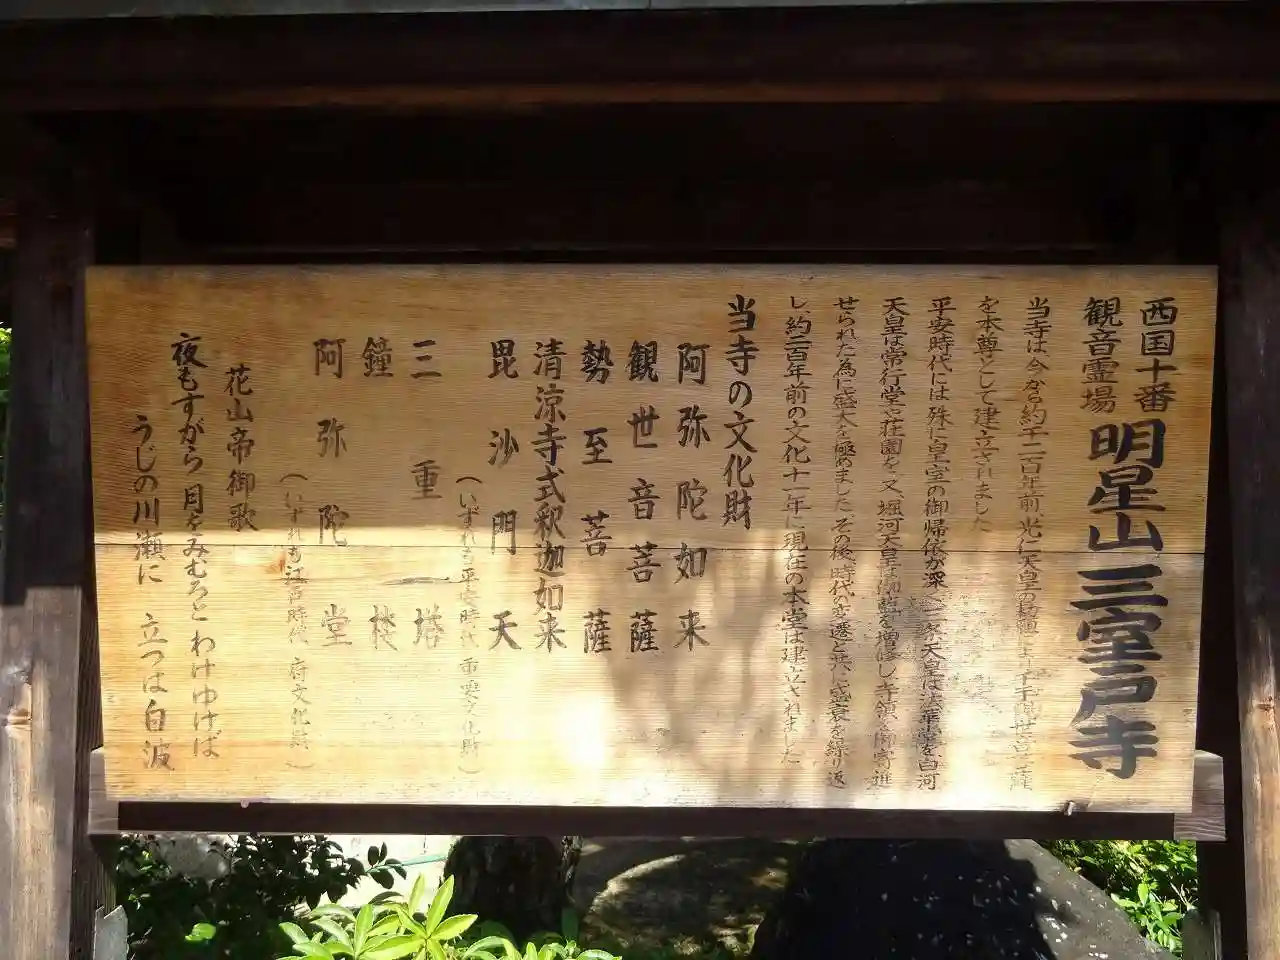 西国十番
観音霊場
明星山三室戸寺
当寺は、今から約千二百年前、光仁天皇の勅願により千手観世音菩薩
を本尊として建立されました
平安時代には殊に皇室の御帰依が深く 天皇は法華堂を、白河
天皇は常行堂や荘園を、又、堀河天皇は 増修し寺領 寄進
せられた為に盛大を極めました その後、時代の変遷と共に盛衰を繰り返
し、約二百年前の文化十一年に現在の本堂は建立されました
当寺の文化財
阿弥陀如来
観世音菩薩
勢至菩薩
清涼寺式釈迦如来
毘沙門天
(いずれも平安時代 重要文化財)
三重塔
鐘楼
阿弥陀堂
(いずれも江戸時代 府文化財)
花山帝御歌
夜もすがら 月をみむろと わけゆけば
うじの川瀬に 立つは白波